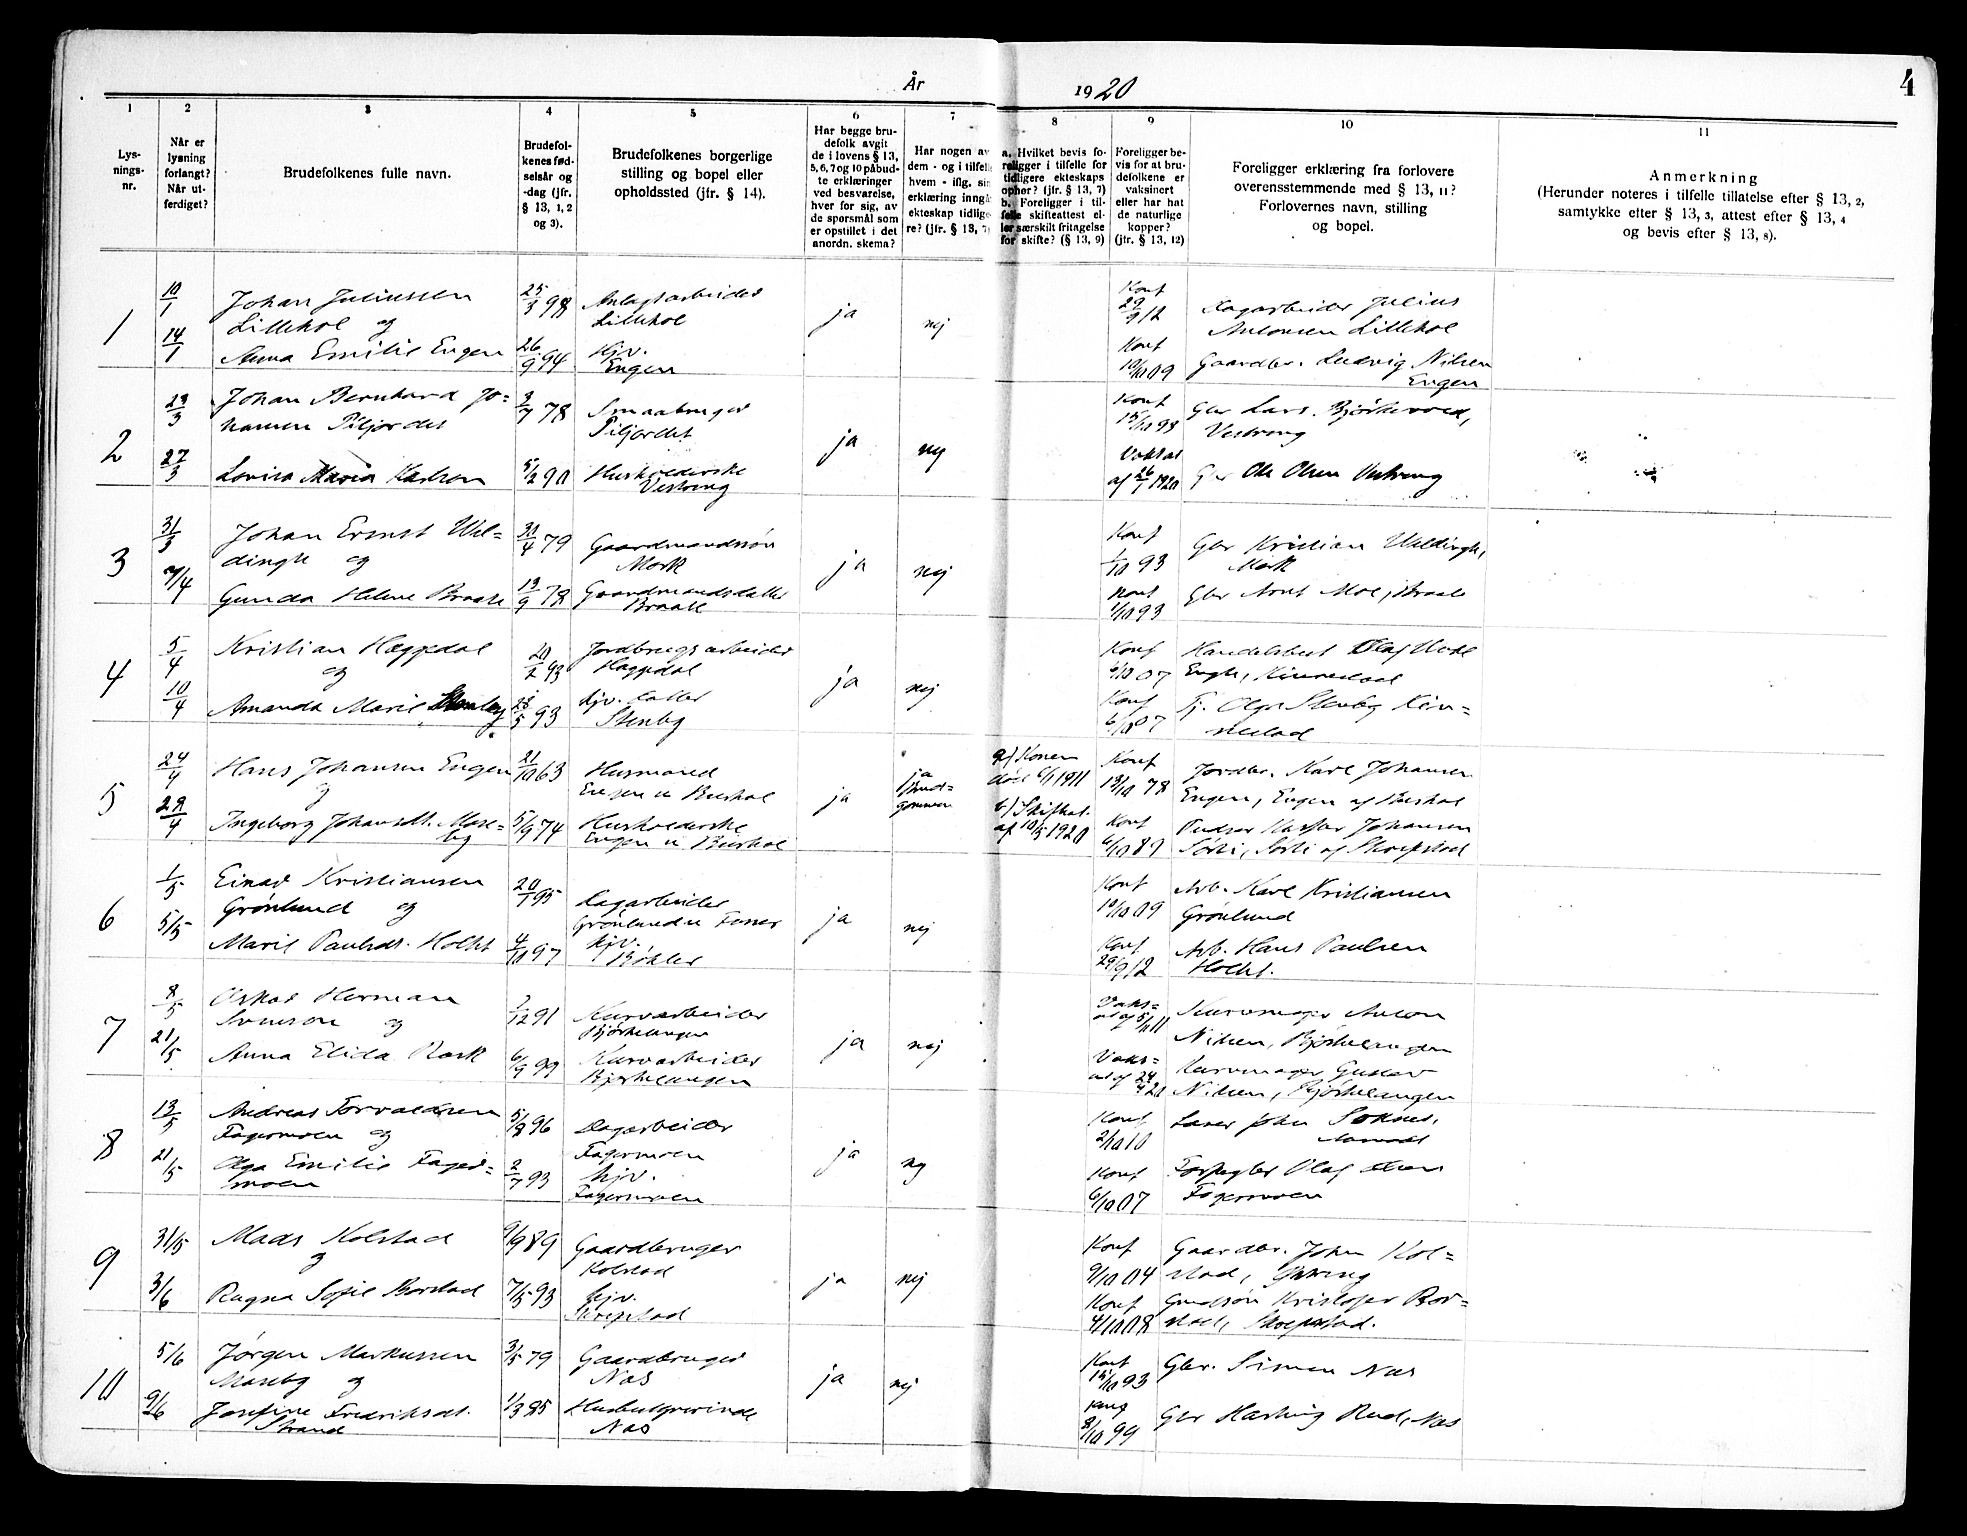 År 1920
4
1 2 3 4 5 6 7 8 9 10 11
Lys-
nings-
nr.
Når er
lysning
forlangt?
Når ut-
ferdiget?
Brudefolkenes fulle navn.
Brudefol-
kenes fød-
selsår og
-dag (jfr.
§ 13, 1, 2
og 3).
Brudefolkenes borgerlige
stilling og bopel eller
opholdssted (jfr. § 14).
Har begge bru-
defolk avgit
de i lovens § 13,
5, 6, 7 og 10 påbud-
te erklæringer
ved besvarelse,
hver for sig, av
de spørsmål som
er opstillet i det
anordn. skema?
Har nogen av
dem - og i tilfelle
hvem - iflg. sin
erklæring inngå
ekteskap tidlige-
re? (jfr. § 13, 7)
a. Hvilket bevis fo-
religger i tilfelle for
tidligere ekteskaps
ophør? (jfr. § 13, 7)
b. Foreligger i til-
felle skifteattest el-
ler særskilt fritagelse
for skifte? (§ 13, 9)
Foreligger be-
vis for at bru-
defolkene er
vaksinert
eller har hat
de naturlige
kopper?
(jfr. § 13, 12)
Foreligger erklæring fra forlovere
overensstemmende med § 13, 11?
Forlovernes navn, stilling
og bopel.
Anmerkning
(Herunder noteres i tilfelle tillatelse efter § 13, 2,
samtykke efter § 13, 3, attest efter § 13, 4
og bevis efter § 13, 8).
1
10/1
14/1
Johan Juliussen
Lillehol og
Anna Emilie Engen
25/3 98
26/9 94
Anlagsarbeider
Lillehol
Hjv.
Engen
ja
nej
Konf
29/9 12
Konf
10/10 09
Dagarbeider Julius
Antonsen Lillehol
Gaardbr. Ludvig Nilsen
Engen
2
23/3
27/3
Johan Bernhard Jo=
hansen Piljordet
Lovisa Maria Karlson
3/7 78
5/2 90
Smaabruger
Piljordet
Husholderske
Vestreng
ja
nej
Konf
15/10 93
af 26/1 1920
Gbr Lars
Vestreng
Gbr Ole Olsen Vestreng
3
31/3
7/4
Johan Ernst Uel=
dingh og
Gunda Helene Braate
21/4 79
13/9 78
Gaardmandssøn
Mork
Gaardmandsdatter
Braate
ja
nej
Konf
1/10 93
Konf
1/10 93
Gbr Kristian Ueldingh,
Mork
Gbr Arnt Moe, Braate
4
5/4
10/4
Kristian Hæggedal
og
Amanda Marie Stenby
20/2 93
28/5 93
Jordbrugsarbeider
Haggedal
Hjv. datter
Stenby
ja
nej
Konf
6/10 07
Konf
6/10 07
Handelsbest Olaf
Tj. Olga Stenby Kin=
nestad
5
24/4
29/4
Hans Johansen Engen
og
Ingeborg Johansdt. Mose=
by
21/10 63
5/9 74
Husmand
Engen u Bushol
Husholderske
Engen u Bushol
ja
ja
Brud-
gommen
a) Konen
død 6/1 1911
b) Skifteat.
af 10/5 1920
Konf
13/10 78
Konf
6/10 89
Jordbr. Karl Johansen
Engen, Engen af Bushol
Pudser Johansen
af Skrepstad
6
1/5
5/5
Einar Kristiansen
Grønlund og
Marie Paulsdt. Holtet
20/1 95
4/10 97
Dagarbeider
Grønlund u Fosser
hjv.
Bøhler
ja
nej
Konf
10/10 09
Konf
29/9 12
Arb. Karl Kristiansen
Grønlund
Arb. Hans Paulsen
Holtet.
7
8/5
21/5
Oskar Herman
Svensen og
Anna Elida Rask
7/12 91
6/9 99
Kurvarbeider
Bjørkelangen
Kurvarbeider
Bjørkelangen
ja
nej
Vaks=
at af 5/11
Vaks=
at af 24/4 20
Kurvmager Anton
Nilsen, Bjørkelangen
Kurvmager Gustav
Nilsen, Bjørkelangen
8
13/5
21/5
Andreas Torvaldsen
Fagermoen og
Olga Emilie Fager=
moen
5/8 96
2/7 93
Dagarbeider
Fagermoen
hjv.
Fagermoen
ja
nej
Konf
2/10 10
Konf
6/10 07
Lærer John Soknes,
Olaf
Fagermoen
9
31/5
3/6
Mads Kolstad
og
Ragna Sofie Borstad
9/9 89
7/5 93
Gaardbruger
Kolstad
hjv.
Skrepstad
ja
nej
Konf
9/10 04
Konf
4/10 08
Gaardbr. John Kol=
stad,
Gmdsøn Kristofer Bor=
stad, Skrepstad.
10
5/6
9/6
Jørgen Markussen
Moseby og
Josefine Fredriksdt.
Strand
3/5 79
1/3 85
Gaardbruger
Nas
Husbestyrerinde
Nas
ja
nej
Konf
15/10 93
Konf
8/10 99
Gbr. Simen Nas
Gbr Hartvig Rud, Nas